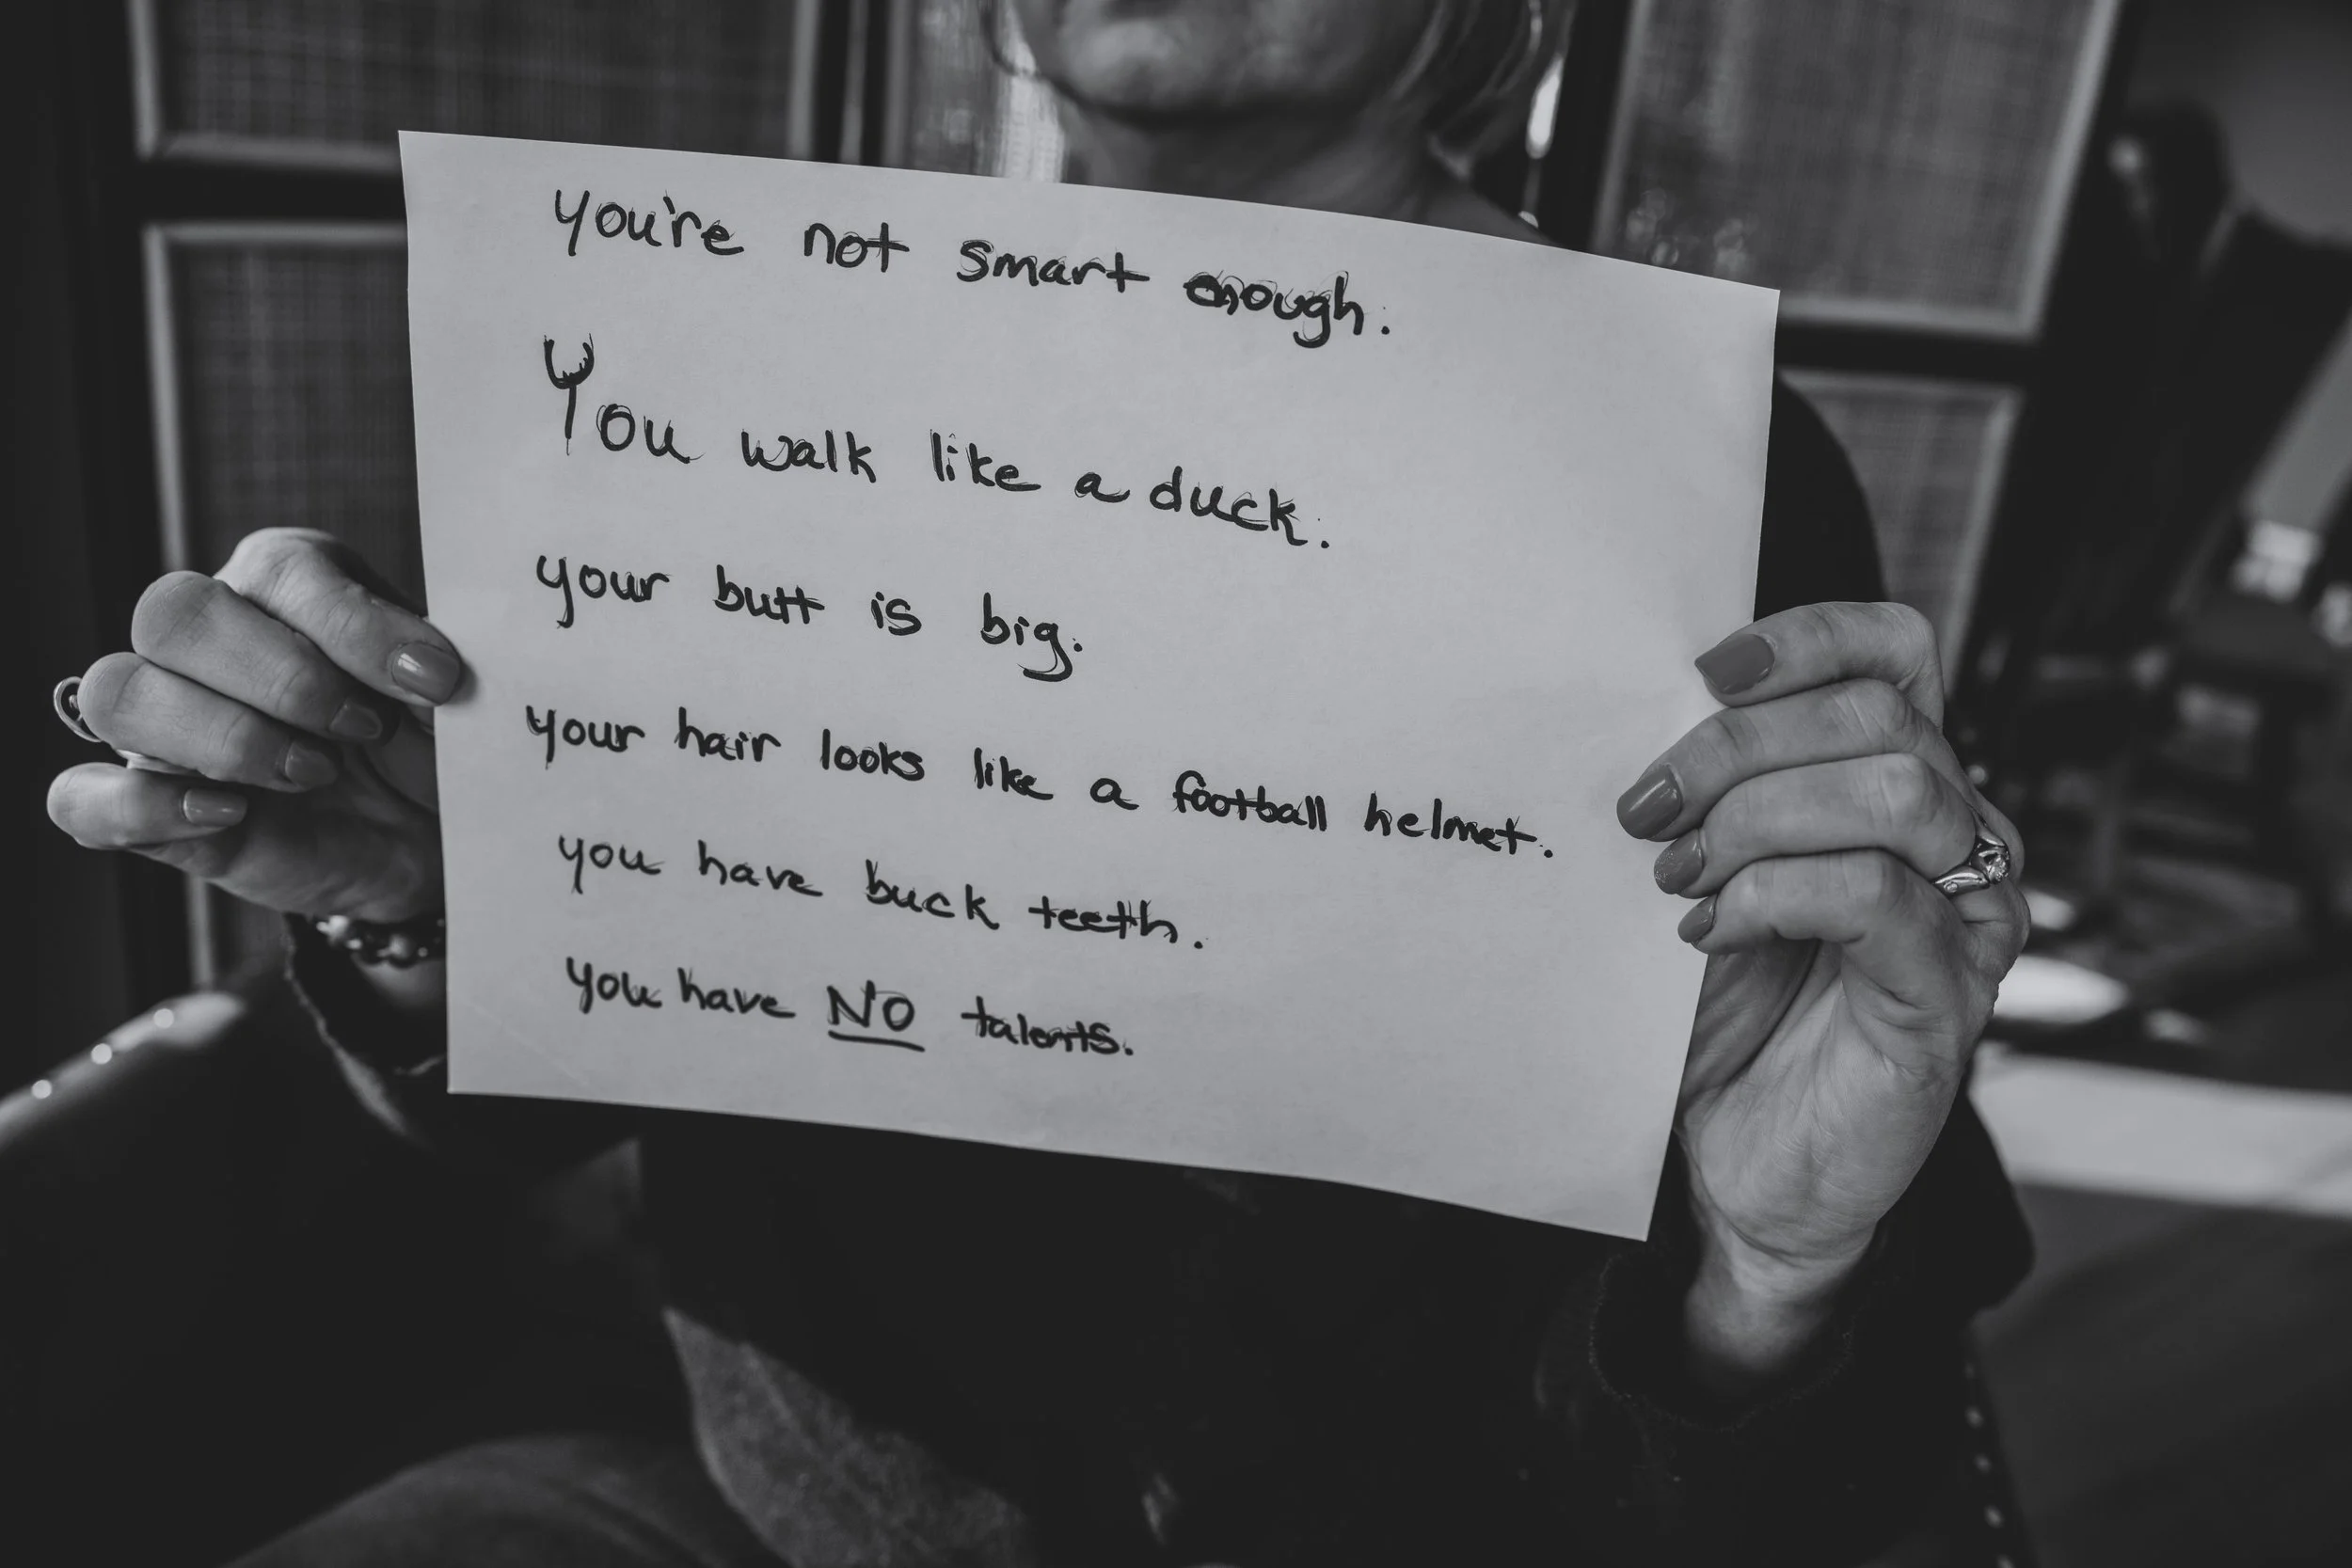 you're not smart enough.
You walk like a duck.
your butt is big.
your hair looks like a football helmet.
you have buck teeth.
you have NO talents.